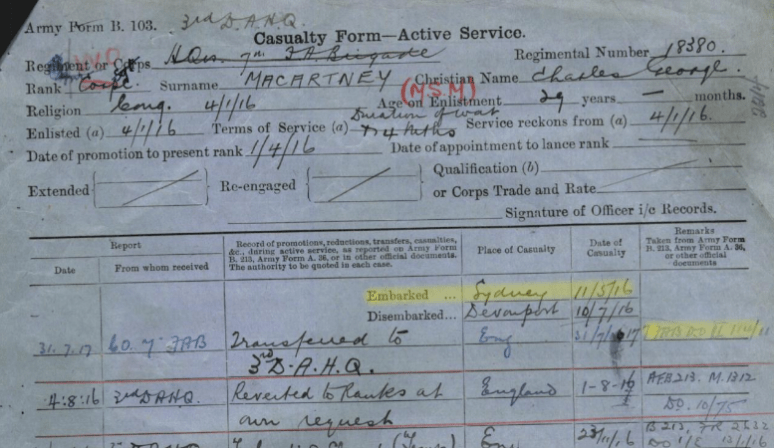 Army Form B. 103. 3rd D.A.H.Q.
Casualty Form—Active Service.
Regiment or Corps HQrs. 7th FA Brigade Regimental Number 18380.
Rank Corpl Surname MACARTNEY Christian Name Charles George.
(MSM)
Religion Cong. 4/1/16 Age on Enlistment 29 years — months.
Duration of war
Enlisted (a) 4/1/16 Terms of Service (a) & 4 Mths Service reckons from (a) 4/1/16.
Date of promotion to present rank 1/4/16 Date of appointment to lance rank
Extended Re-engaged Qualification (b)
or Corps Trade and Rate
Signature of Officer i/c Records.
Report
Date From whom received
Record of promotions, reductions, transfers, casualties,
&c., during active service, as reported on Army Form
B. 213, Army Form A. 36, or in other official documents.
The authority to be quoted in each case.
Place of Casualty
Date of
Casualty
Remarks
Taken from Army Form
B. 213, Army Form A. 36,
or other official
documents
Embarked ... Sydney 11/5/16
Disembarked... Devonport 10/7/16
31.7.17 7 FAB Transferred to Eng
3rd D.A.H.Q.
4:8:16 3rd DAHQ. Reverted to Ranks at England 1-8-16 AFB213.
own request DO. 10/75
Eng B213.